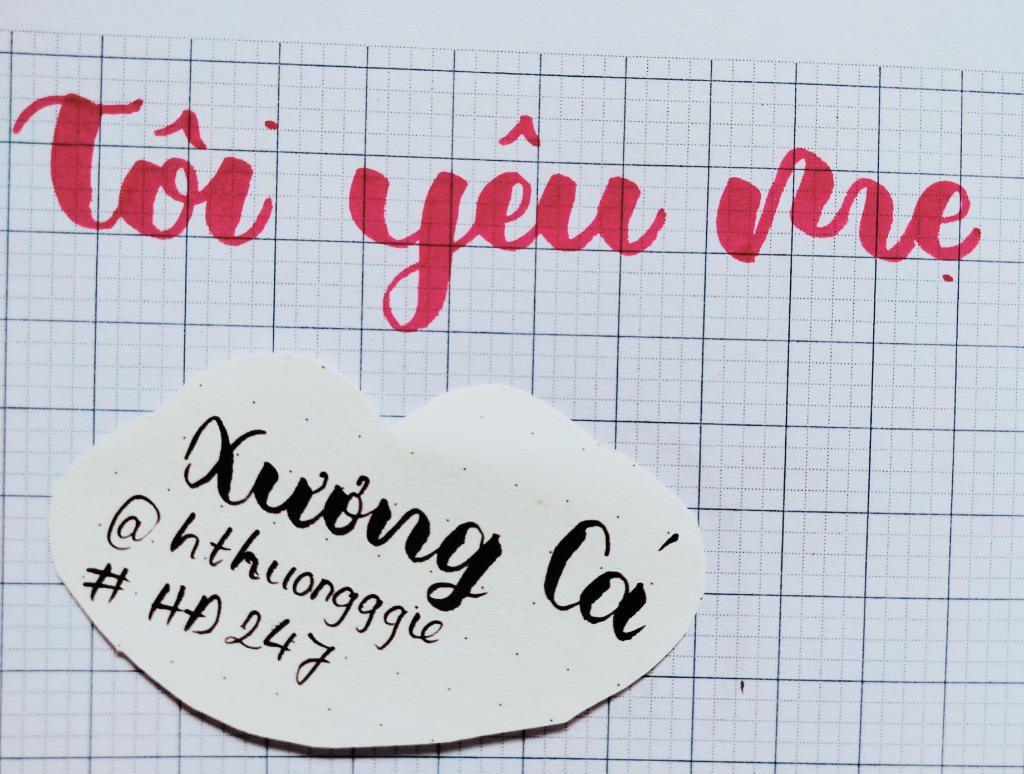 Tôi yêu mẹ
Xưởng Cá
@hthuongggie
# HĐ247